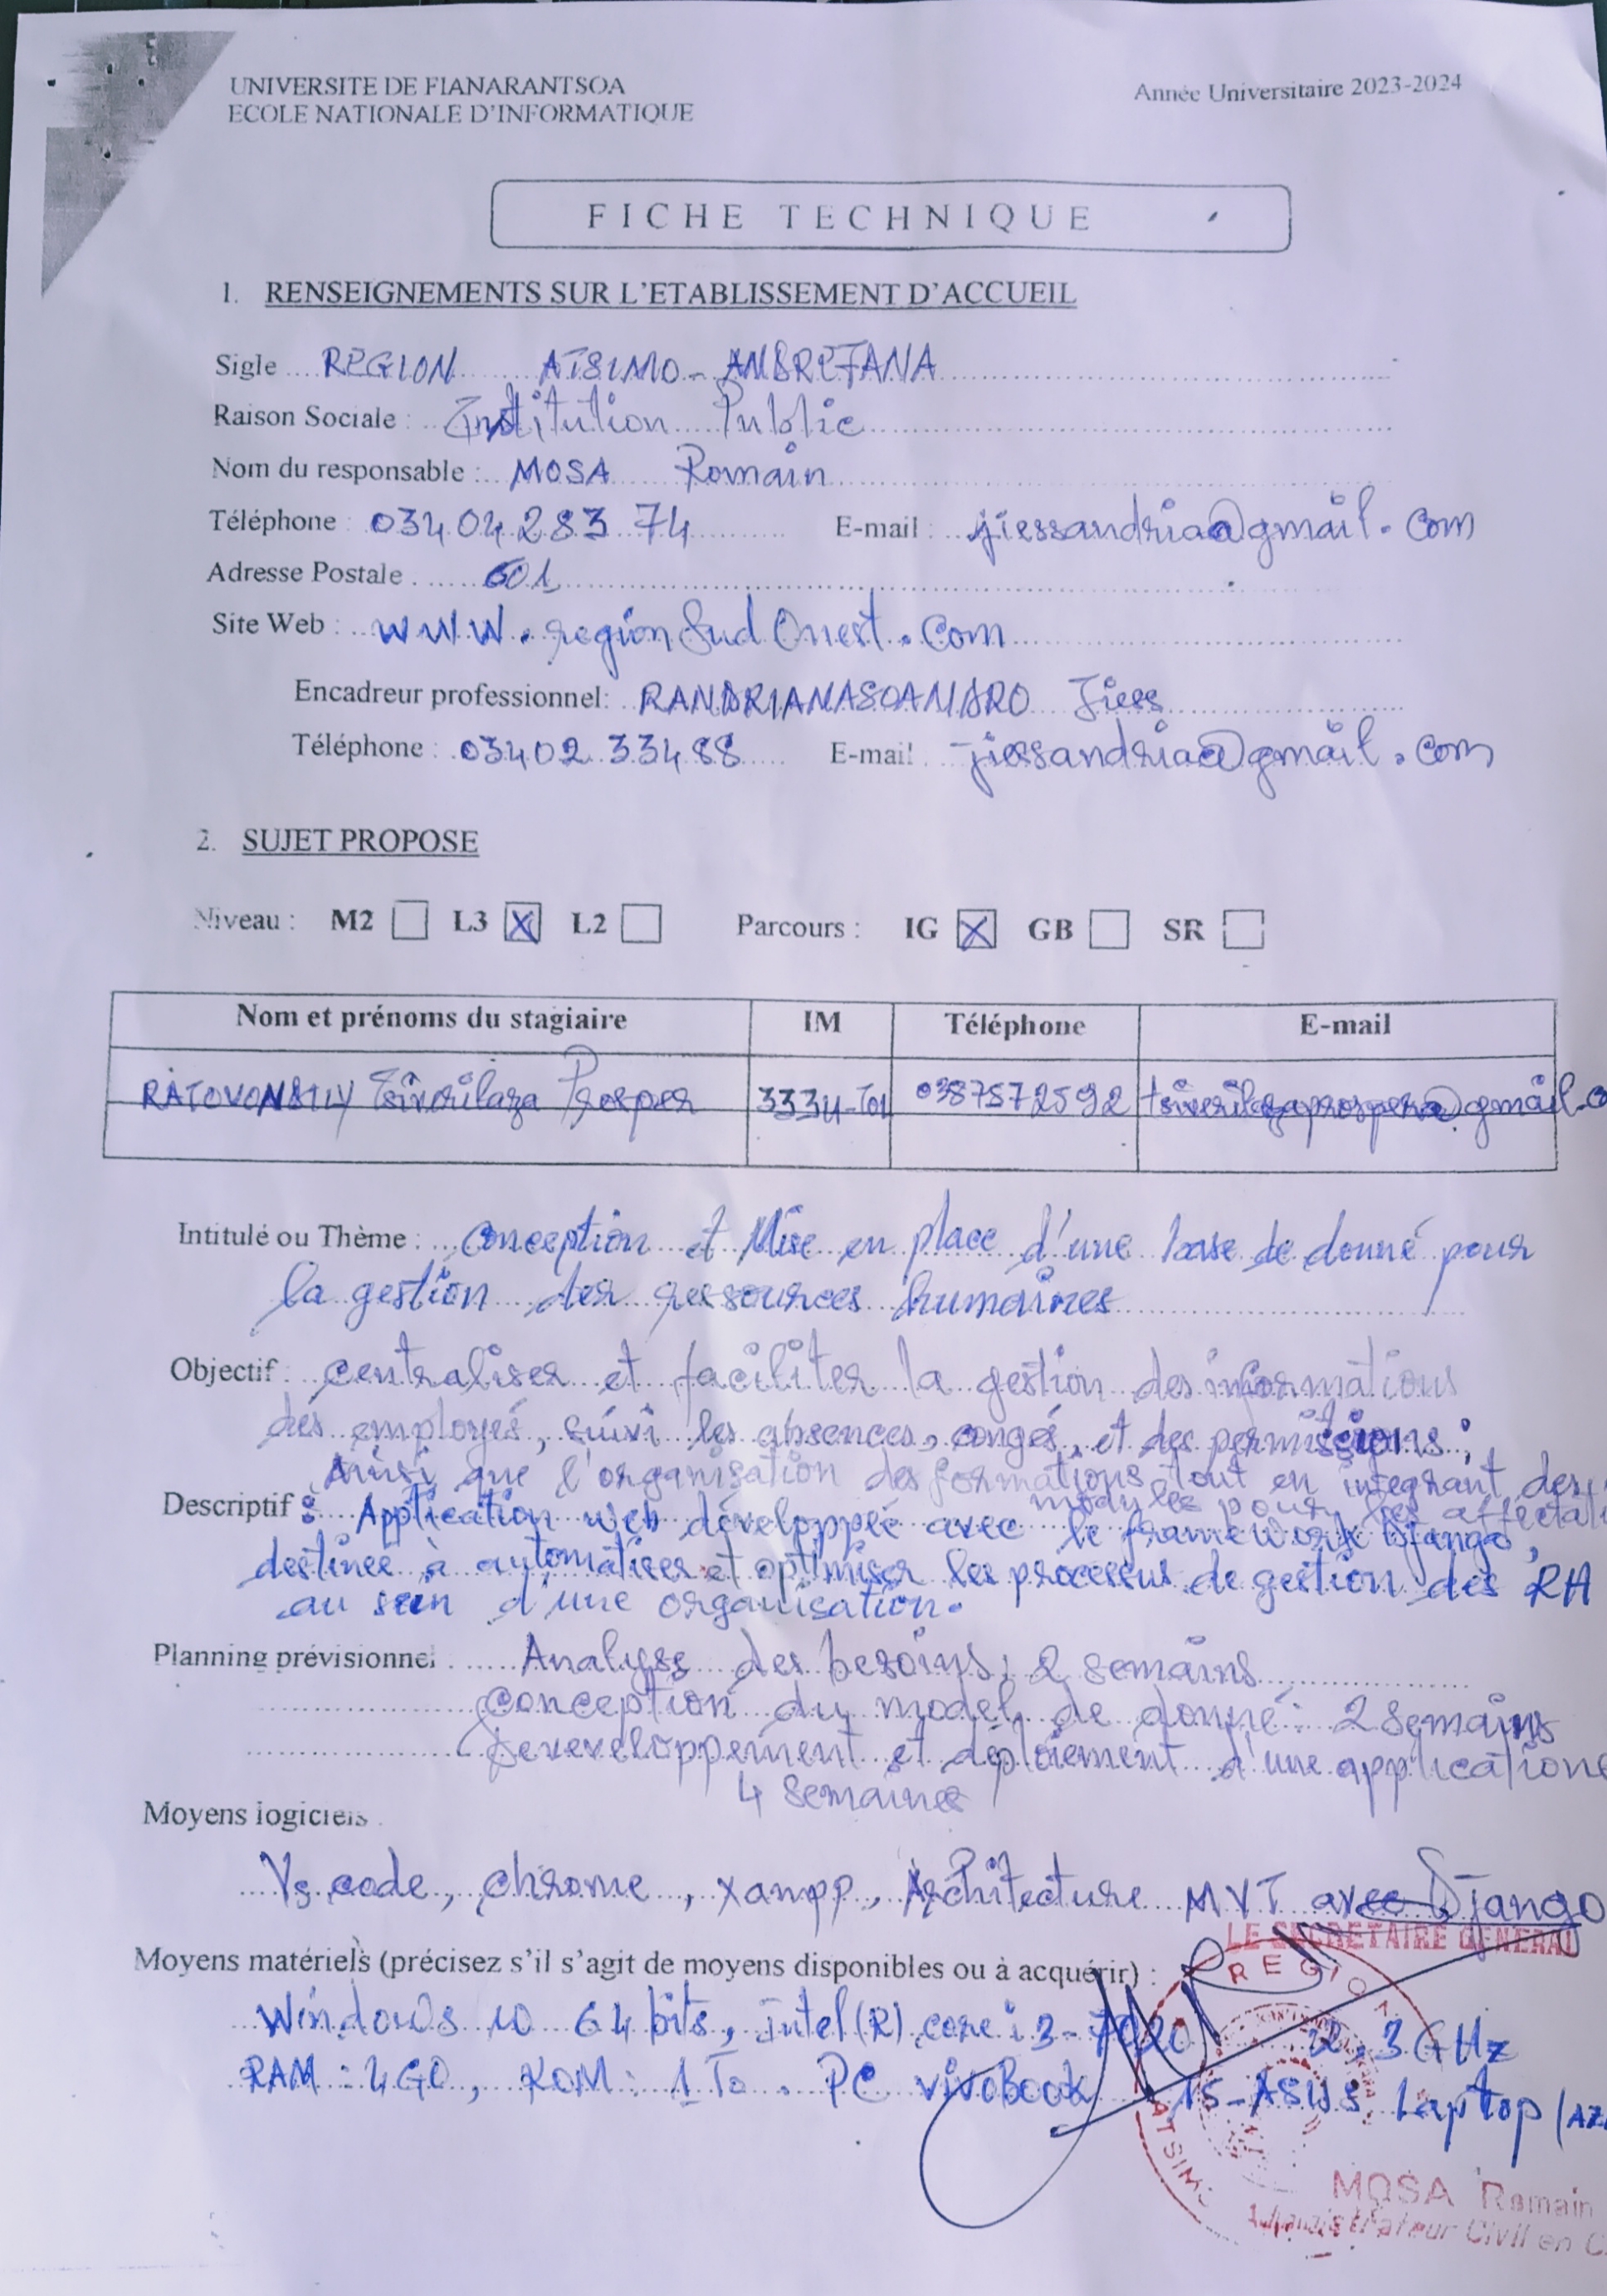 UNIVERSITE DE FIANARANTSOA
ECOLE NATIONALE D'INFORMATIQUE
Année Universitaire 2023-2024
FICHE TECHNIQUE
1. RENSEIGNEMENTS SUR L'ETABLISSEMENT D'ACCUEIL
Sigle REGION ATSIMO-ANDREFANA
Raison Sociale : Institution Public
Nom du responsable : MOSA Romain
Téléphone : 034 04 283 74 E-mail : jiessandria@gmail.com
Adresse Postale 601
Site Web : www.regionSudOuest.com
Encadreur professionnel: RANDRIANASOANDRO Jiess
Téléphone : 03402 334 88 E-mail jiessandria@gmail.com
2. SUJET PROPOSE
Niveau : M2 L3 X L2 Parcours : IG X GB SR
Nom et prénoms du stagiaire IM Téléphone E-mail
RATOVONDTLY Tsiverilaza Prosper 3334-T01 0387572592
Intitulé ou Thème : conception et Mise en place d'une base de donné pour
la gestion des ressources humaines
Objectif : centraliser et faciliter la gestion des informations
des employés, suivi les absences, congés, et des permissions ;
Ainsi que l'organisation des formations tout en integrant des
modules pour les
Descriptif : Application web développée avec le framework Django,
destinée à automatiser et optimiser les processus de gestion des RA
au sein d'une organisation.
Planning prévisionnel Analyse des besoins, 2 semains
conception du model de donné : 2 semains
Deveveloppement et déploiement d'une application
4 semaines
Moyens logiciels
Vs code, chrome, xampp, Architecture MVT avec Django
LE SECRETAIRE GENERAL
Moyens matériels (précisez s'il s'agit de moyens disponibles ou à acquérir) :
REGION
Windows 10 64 bits, intel(R) core i3-7020 2,3GHz
RAM : 4GO, ROM : 1To. PC vivoBook 15-ASUS Laptop
ATSIM
MOSA Romain
Administrateur Civil en